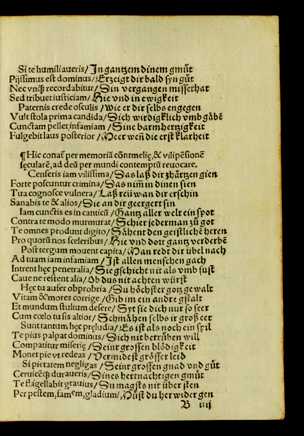 Si te humiliaueris/In gantzem dinem gmüt
Pijssimus est dominus/Erzeigt dir bald syn güt
Nec vnquam recordabitur/Sin vergangen missethat
Sed tribuet iusticiam/Hie vnd in ewigkeit
Paternis crede osculis/Wie er dir selbs engegen
Vult stola prima candida/Sich wirdigklich vmb gäbē
Cunctam pellet infamiam/Sine barmhertzigkeit
Fulgebit laus posterior/Meer weñ die erst klarheit
¶Hic conaſ per memoriā cōntmelię, & vilipēsionē
seculare, ad deū per mundi contemptū reuocare.
Censeris iam vilissima/Das laß dir zhärtzen gien
Forte poscuntur crimina/Das nim in dinen sien
Tuta cognosce vulnera/Laß rew an dir erschin
Sanabis te & alios/Sie an dir geergert sin
Iam cunctis es in canticū/Gantz aller welt ein spot
Contra te modo murmurat/Schier jederman zu got
Te omnes produnt digito/Sähent den geistlichē heren
Pro quot nos sceleribus/Hie vnd dort gantz verderbē
Post tergum mouent capita/Man redt dir übel nach
Ad tuam iam infamiam/Ist allen menschen gach
Intrent hęc penetralia/Sie gschicht nit als vmb sust
Caue ne resient alia/Ob dus nit achten würst
Hęc tu aufer obprobria/Su höchster gotz gewalt
Vitam ōc mores corrige/Gib im ein ander gstalt
Et mundum stultum desere/Syt sie dich nur so seer
Cum cœlo tu sis altior/Schmähen selbs ir groß eer
Sunt tantum hęc pręludia/Es ist als noch ein spil
Te pius palpat dominus/Sich nit betrüben will
Compatitur miserię/Seiner grossen blödigkeit
Monet pie vt redeas/Vermidest grösser leid
Si pietatem negligas/Seiner grossen gnad vnd güt
Ceruicēque duraueris/Dines hertnachtigen gmüt
Te flagellabit grauius/Su magst's nit über sten
Per pestem, famem, gladium/Müst du her wider gen
B iiij